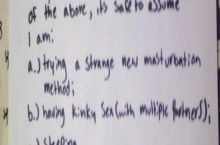 of the above, it's safe to assume
I am:
a.) trying a strange new masturbation
method;
b.) having kinky sex (with multiple partners);
c.) sleeping